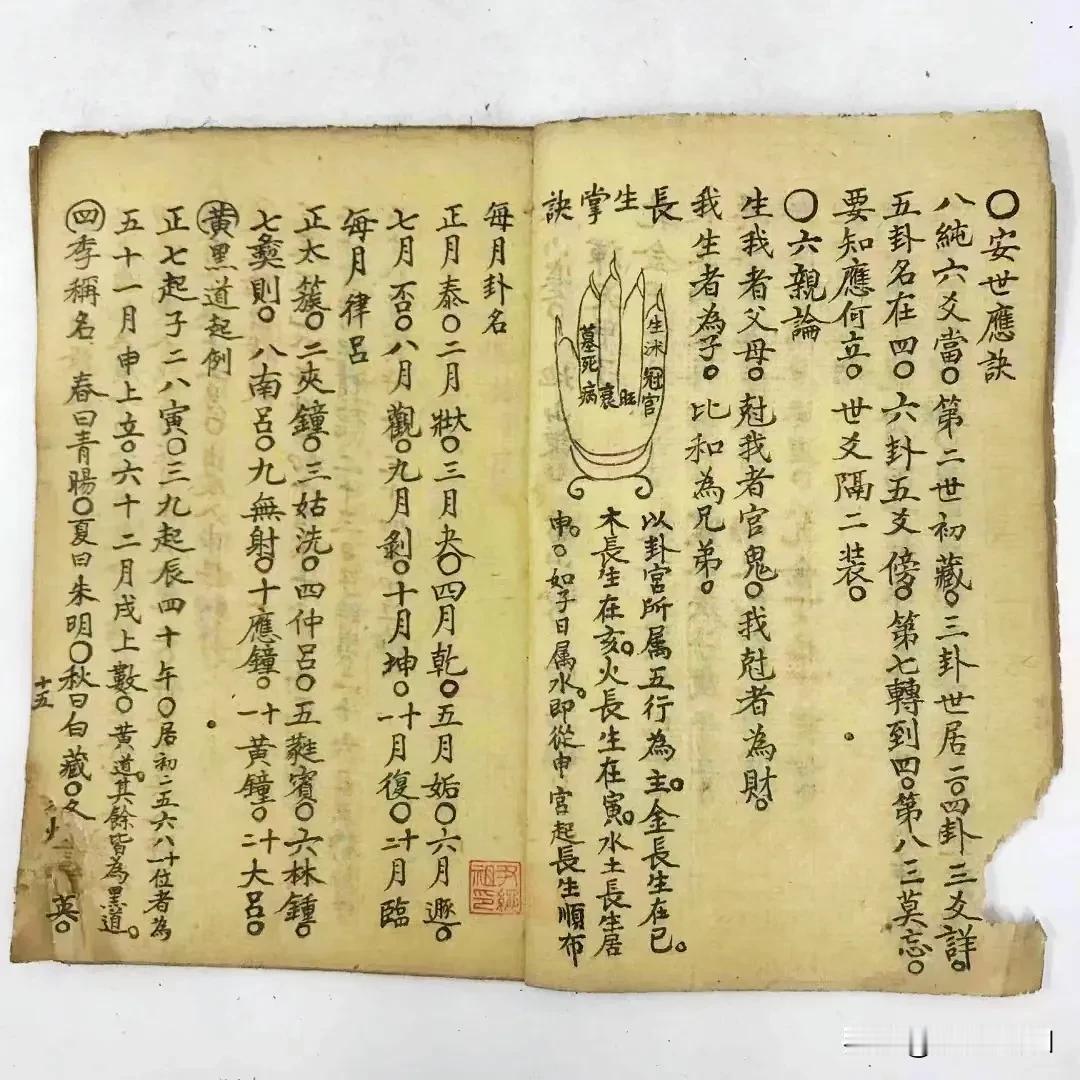 〇安世應訣
八純六爻當〇第二世初藏〇三卦世居二〇四卦三爻詳〇
五卦名在四〇六卦五爻傍〇第七轉到四〇第八三莫忘〇
要知應何立〇世爻隔二装〇
〇六親論
生我者父母〇尅我者官鬼〇我尅者為財〇
我生者為子〇比和為兄弟〇
長生掌訣
生沐冠官
旺
衰
墓死病
以卦宮所属五行為主。金長生在巳。
木長生在亥。火長生在寅。水土長生居
申。〇如子日属水。即從申宮起長生順布
每月卦名
正月泰〇二月大壯〇三月夬〇四月乾〇五月姤〇六月遯〇
七月否〇八月觀〇九月剝〇十月坤〇十一月復〇十二月臨
每月律呂
正太簇〇二夾鐘〇三姑洗〇四仲呂〇五蕤賓〇六林鍾〇
七夷則〇八南呂〇九無射〇十應鐘〇十一黃鐘〇十二大呂〇
黃黑道起例
正七起子二八寅〇三九起辰四十午〇居初二五六八十位者為
五十一月申上立〇六十二月戌上數〇黃道。其餘皆為黑道。
四季稱名 春曰青暘〇夏曰朱明〇秋曰白藏〇冬 英〇
十五